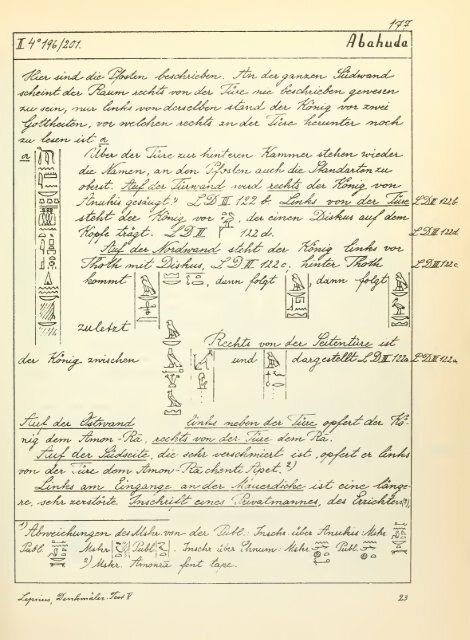 177
II 4° 196/201. Abahuda
Hier sind die Pfosten beschrieben. An der ganzen Südwand
scheint der Raum rechts von der Türe nie beschrieben gewesen
zu sein, nur links von derselben stand der König vor zwei
Gottheiten, vor welchen rechts an der Türe herunter noch
zu lesen ist a
a Über der Türe zur hinteren Kammer stehen wieder
die Namen, an den Pfosten auch die Standarten zu
oberst. Auf der Türwand wird rechts der König von
Anukis gesäugt. 1) L D III. 122 b. Links von der Türe L D III 122 b
steht der König vor der einen Diskus auf dem
Kopfe trägt. L D III. 122 d. L D III 122 d
Auf der Nordwand steht der König links vor
Thoth mit Diskus, L D III. 122 c, hinter Thoth L D III 122 c
kommt , dann folgt , dann folgt
zuletzt
Rechts von der Seitentüre ist
der König zwischen und dargestellt L D III. 122 a L D III. 122 a
Auf der Ostwand links neben der Türe opfert der Kö-
nig dem Amon-Ra, rechts von der Türe dem Ra.
Auf der Südseite, die sehr verschmiert ist, opfert er links
von der Türe dem Amon-Ra chent Apet. 2)
Links am Eingange an der Mauerdicke ist eine länge-
re, sehr zerstörte Inschrift eines Privatmannes, des Errichters(?),
1) Abweichungen des Mskr. von der Publ.: Inschr. über Anukis: Mskr.
Publ. Mskr. Publ. . Inschr. über Chnum: Mskr. Publ.
2) Mskr. Amonra fent tape.
Lepsius, Denkmäler. Text V 23